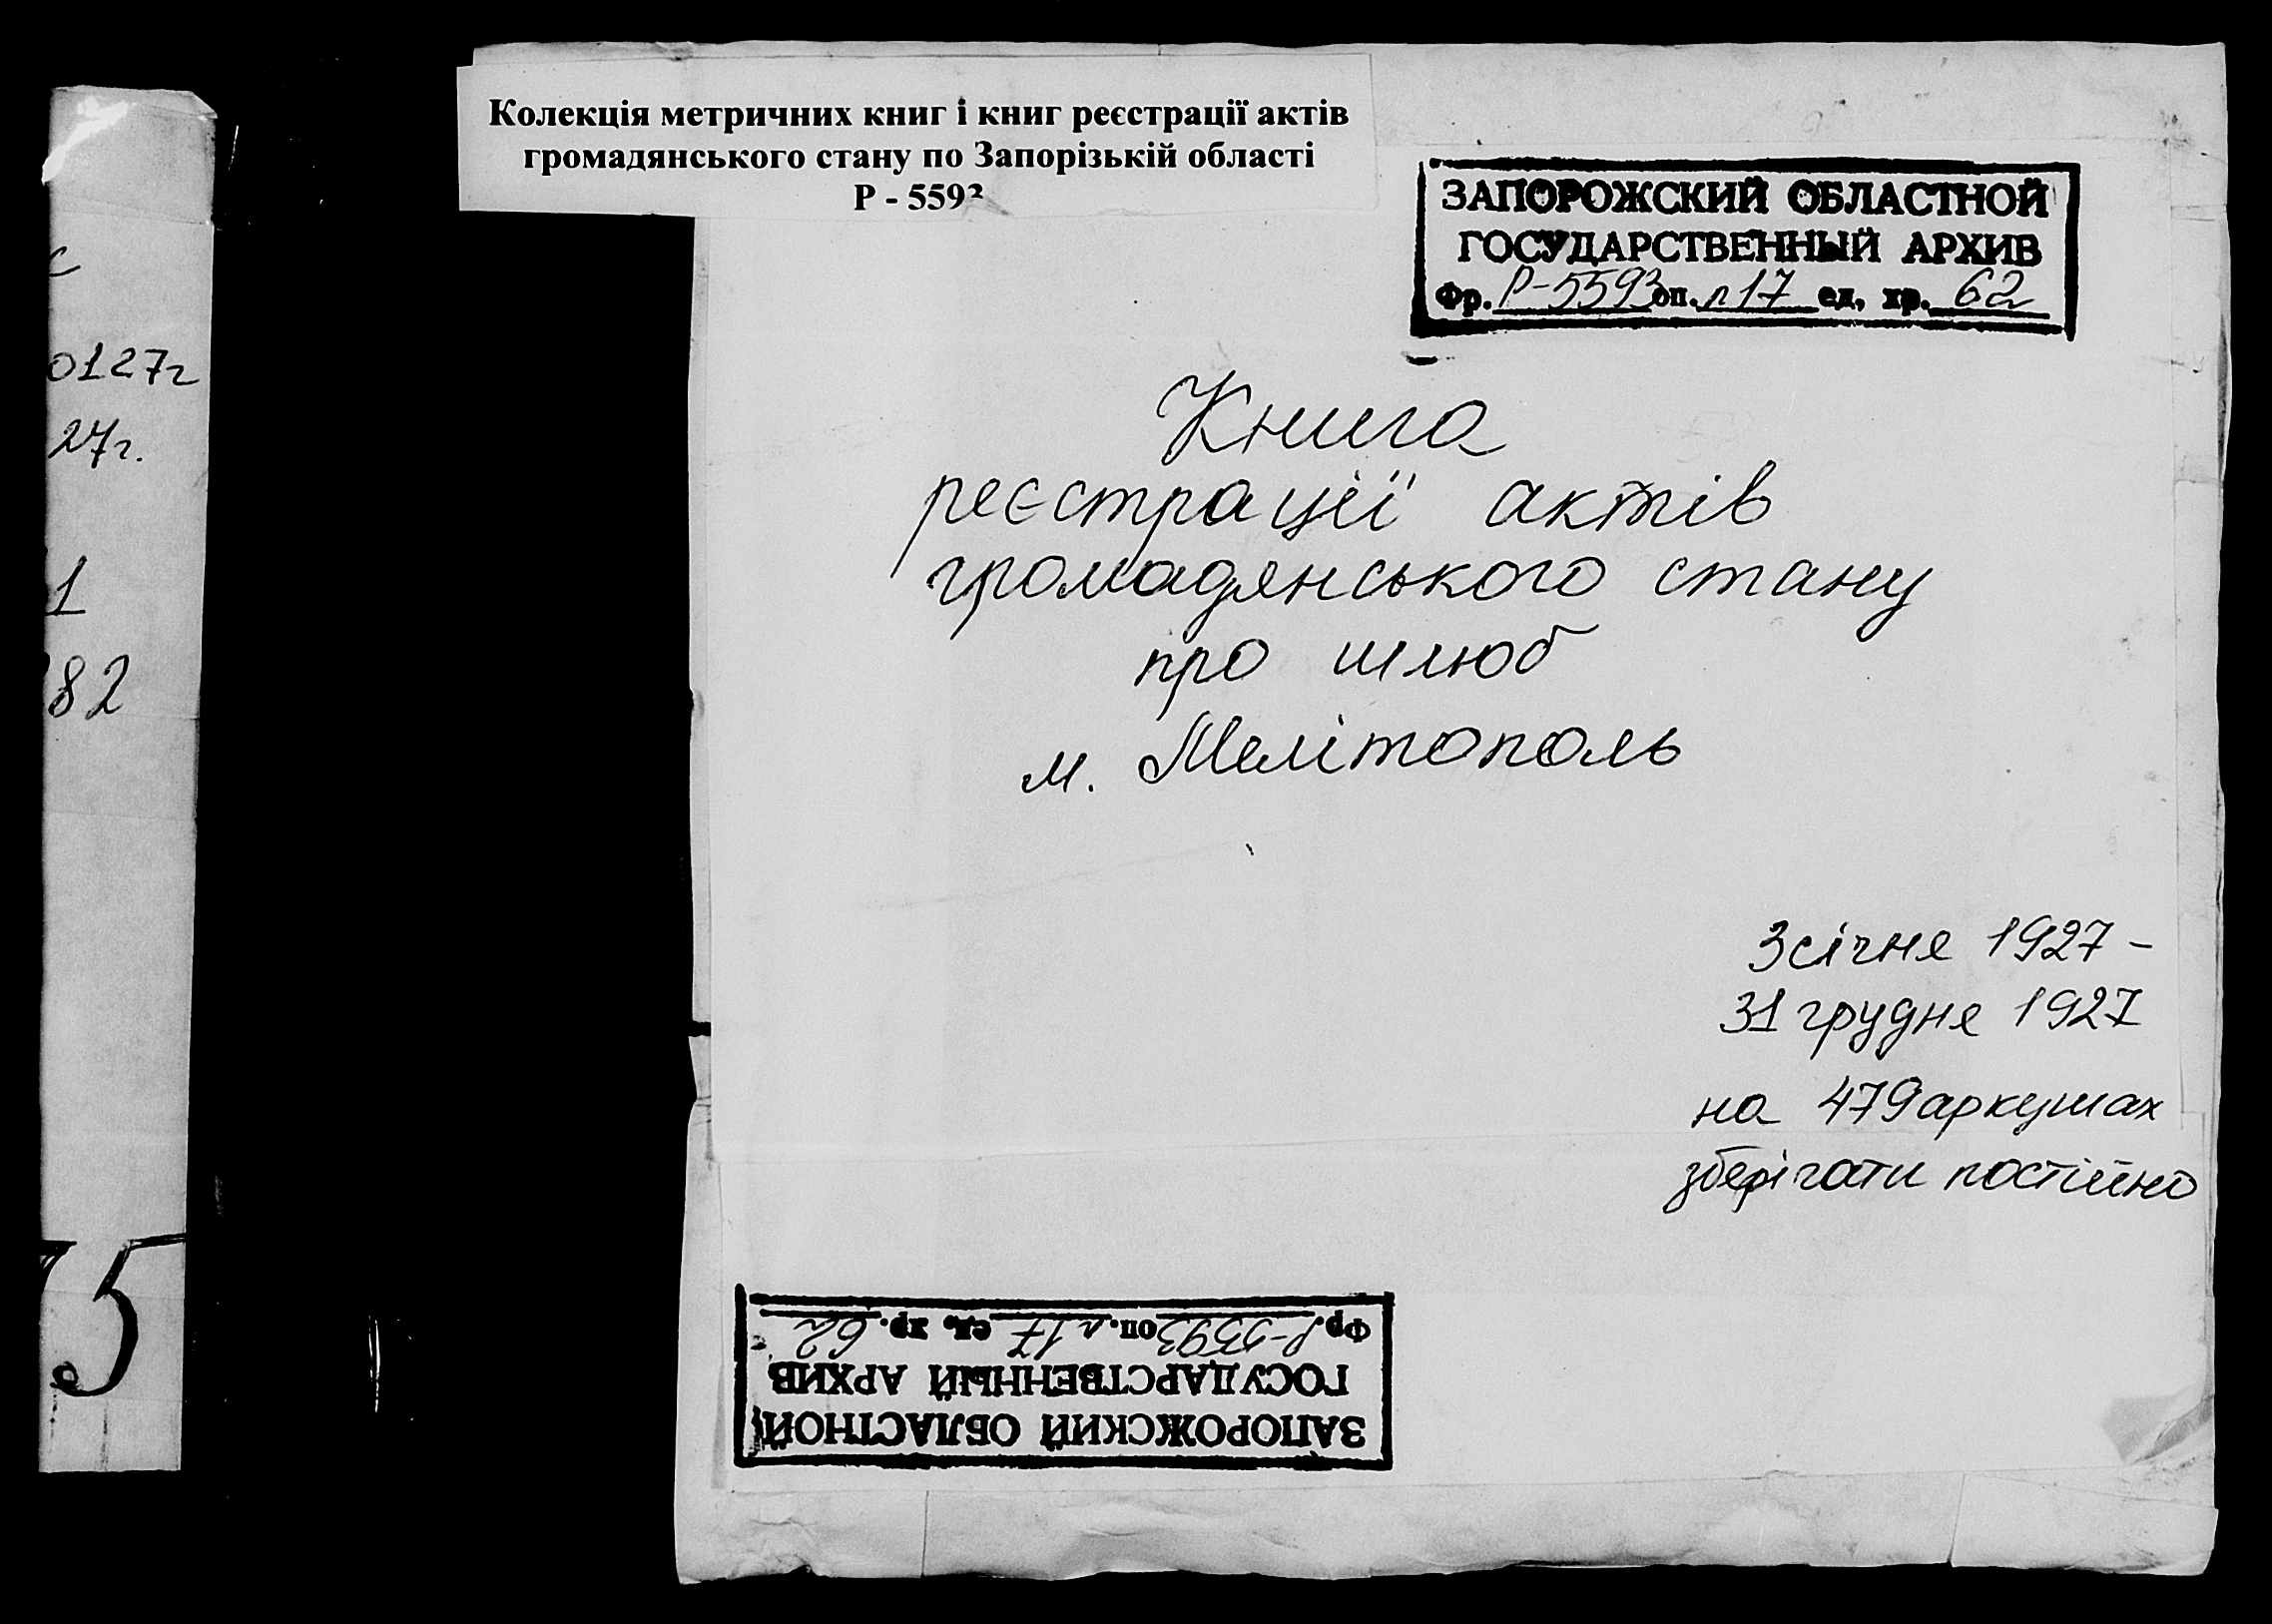 Колекція метричних книг і книг реєстрації актів
громадянського стану по Запорізькій області
Р - 5593
ЗАПОРОЖСКИЙ ОБЛАСТНОЙ
ГОСУДАРСТВЕННЫЙ АРХИВ
Фр. Р-5593 оп. л17 ед. хр. 62
Книга
реєстрації актів
громадянського стану
про шлюб
м. Мелітополь
3 січня 1927 -
31 грудня 1927
на 479 аркушах
зберігати постійно
Фр. Р-5593 оп. л17 ед. хр. 62
ГОСУДАРСТВЕННЫЙ АРХИВ
ЗАПОРОЖСКИЙ ОБЛАСТНОЙ
0127г
27г.
1
82
5